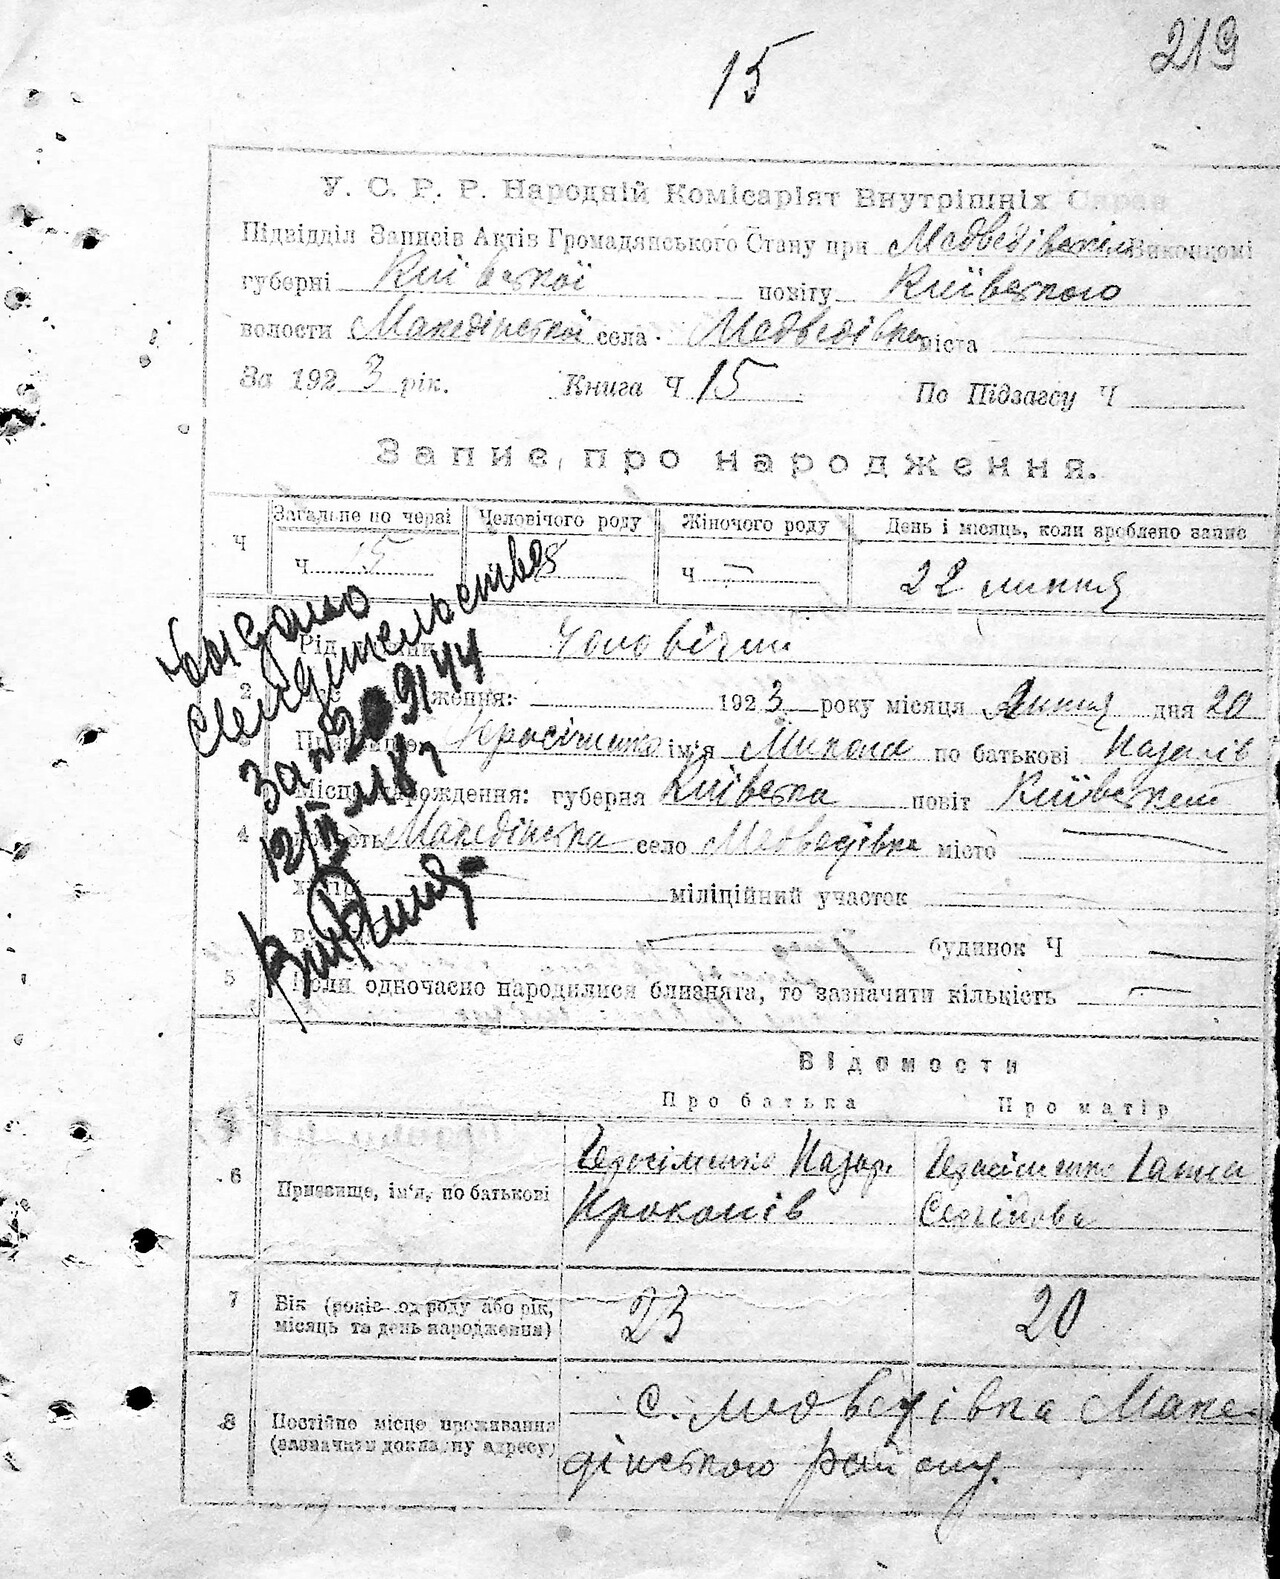 219
15
У. С. Р. Р. Народній Комісаріят Внутрішніх Справ
Підвідділ Записів Актів Громадянського Стану при Медведівськім Виконкомі
губерні Київської повіту Київського
волости Македінської села Медведівки міста
За 1923 рік. Книга Ч 15 По Підзагсу Ч
Запис про народження.
Ч Загальне по черзі Человічого роду Жіночого роду День і місяць, коли зроблено запис
Ч 15 8 Ч — 22 липня
Рід Чоловічий
2 народження: 1923 року місяця Липня дня 20
Герасіменко ім'я Микола по батькові Назарів
Місце народження: губерня Київська повіт Київський
4 волость Македінська село Медведівка місто
міліційний участок
будинок Ч
5 Коли одночасно народилися близнята, то зазначяти кількість
Выдано
Свидетельство
За № 209144
12/II
Відомости
Про батька Про матір
6 Призвище, ім'я, по батькові Герасіменко Назар Прокопів Герасіменко Ганна Сергіївна
7 Вік (років од роду або рік, місяць та день народження) 23 20
8 Постійне місце проживання (зазначити докладну адресу) с. Медведівка Македінського району.